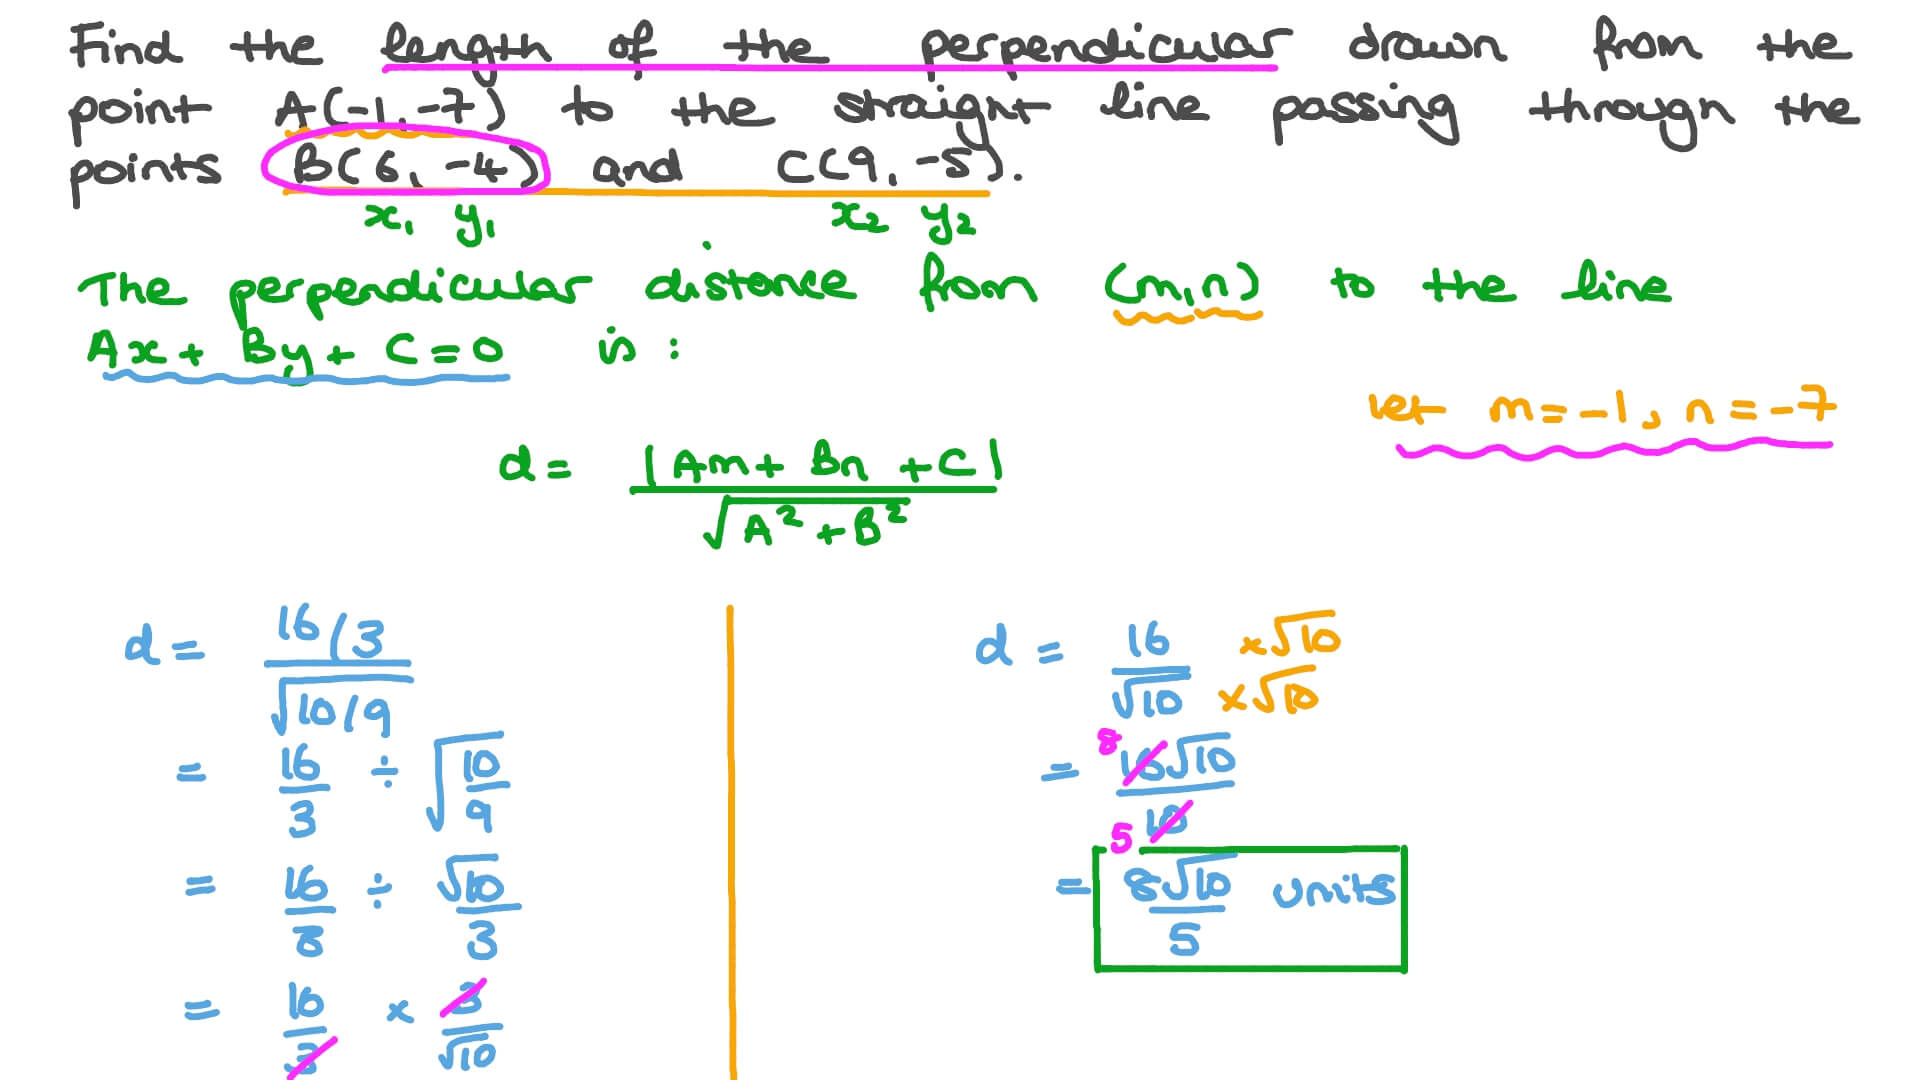 Find the length of the perpendicular drawn from the
point A(-1,-7) to the straight line passing through the
points B(6,-4) and C(9,-5).
x₁ y₁ x₂ y₂
The perpendicular distance from (m,n) to the line
Ax + By + C = 0 is :
let m = -1, n = -7
d = |Am + Bn + C|
√A² + B²
d = 16/3
√10/9
= 16/3 ÷ √10/9
= 16/3 ÷ √10/3
= 16/3 × 3/√10
d = 16/√10 ×√10/×√10
= 16√10/10
8
5
= 8√10/5 units